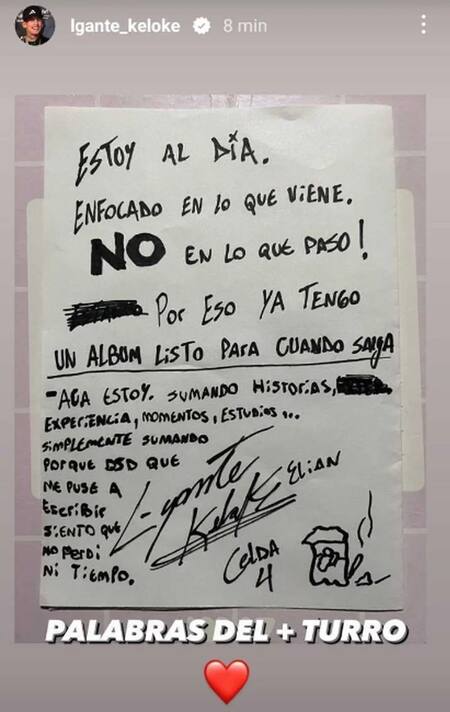 lgante_keloke 8 min
ESTOY AL DÍA.
ENFOCADO EN LO QUE VIENE.
NO EN LO QUE PASO!
POR ESO YA TENGO
UN ALBUM LISTO PARA CUANDO SALGA
-ACA ESTOY. SUMANDO HISTORIAS,
EXPERIENCIA, MOMENTOS, ESTUDIOS...
SIMPLEMENTE SUMANDO
PORQUE DSD QUE
ME PUSE A
ESCRIBIR
SIENTO QUE
NO PERDI
NI TIEMPO.
L-gante
Keloke
ELIAN
CELDA
4
PALABRAS DEL + TURRO